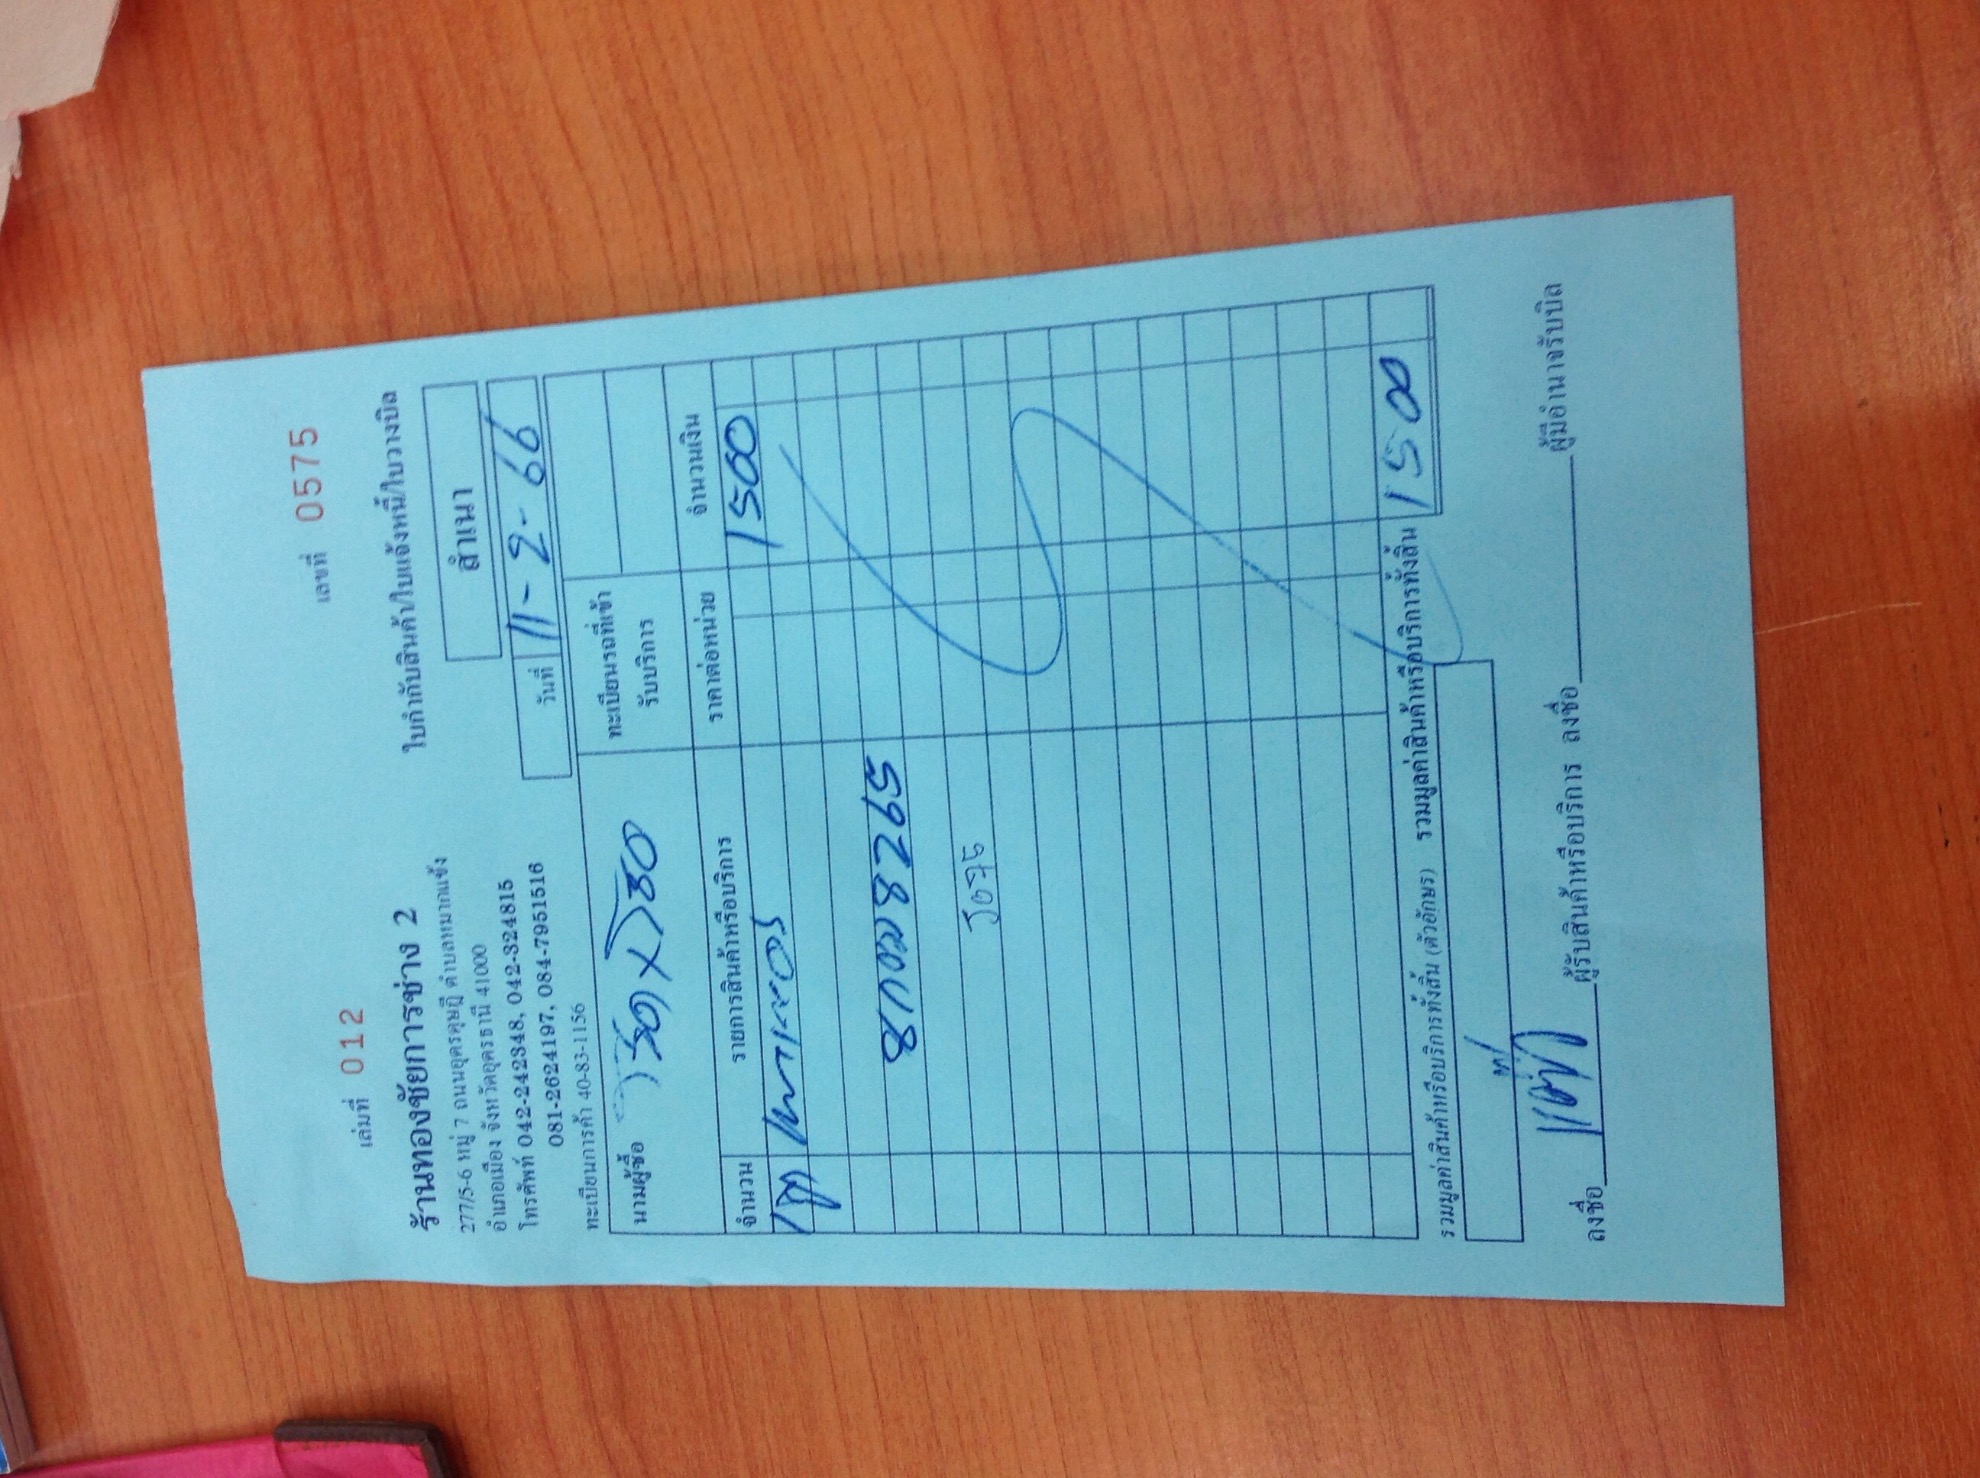 เล่มที่ 012
เลขที่ 0575
ร้านทองชัยการช่าง 2
ใบกำกับสินค้า/ใบแจ้งหนี้/ใบวางบิล
277/5-6 หมู่ 7 ถนนอุดรดุษฎี ตำบลหมากแข้ง
อำเภอเมือง จังหวัดอุดรธานี 41000
สำเนา
โทรศัพท์ 042-242348, 042-324815
081-2624197, 084-7951516
วันที่ 11-2-66
ทะเบียนการค้า 40-83-1156
นามผู้ซื้อ
ทะเบียนรถที่เข้า
รับบริการ
จำนวน รายการสินค้าหรือบริการ ราคาต่อหน่วย จำนวนเงิน
1500
8265
รวมมูลค่าสินค้าหรือบริการทั้งสิ้น (ตัวอักษร) รวมมูลค่าสินค้าหรือบริการทั้งสิ้น 1500
ลงชื่อ ผู้รับสินค้าหรือบริการ ลงชื่อ ผู้มีอำนาจรับบิล